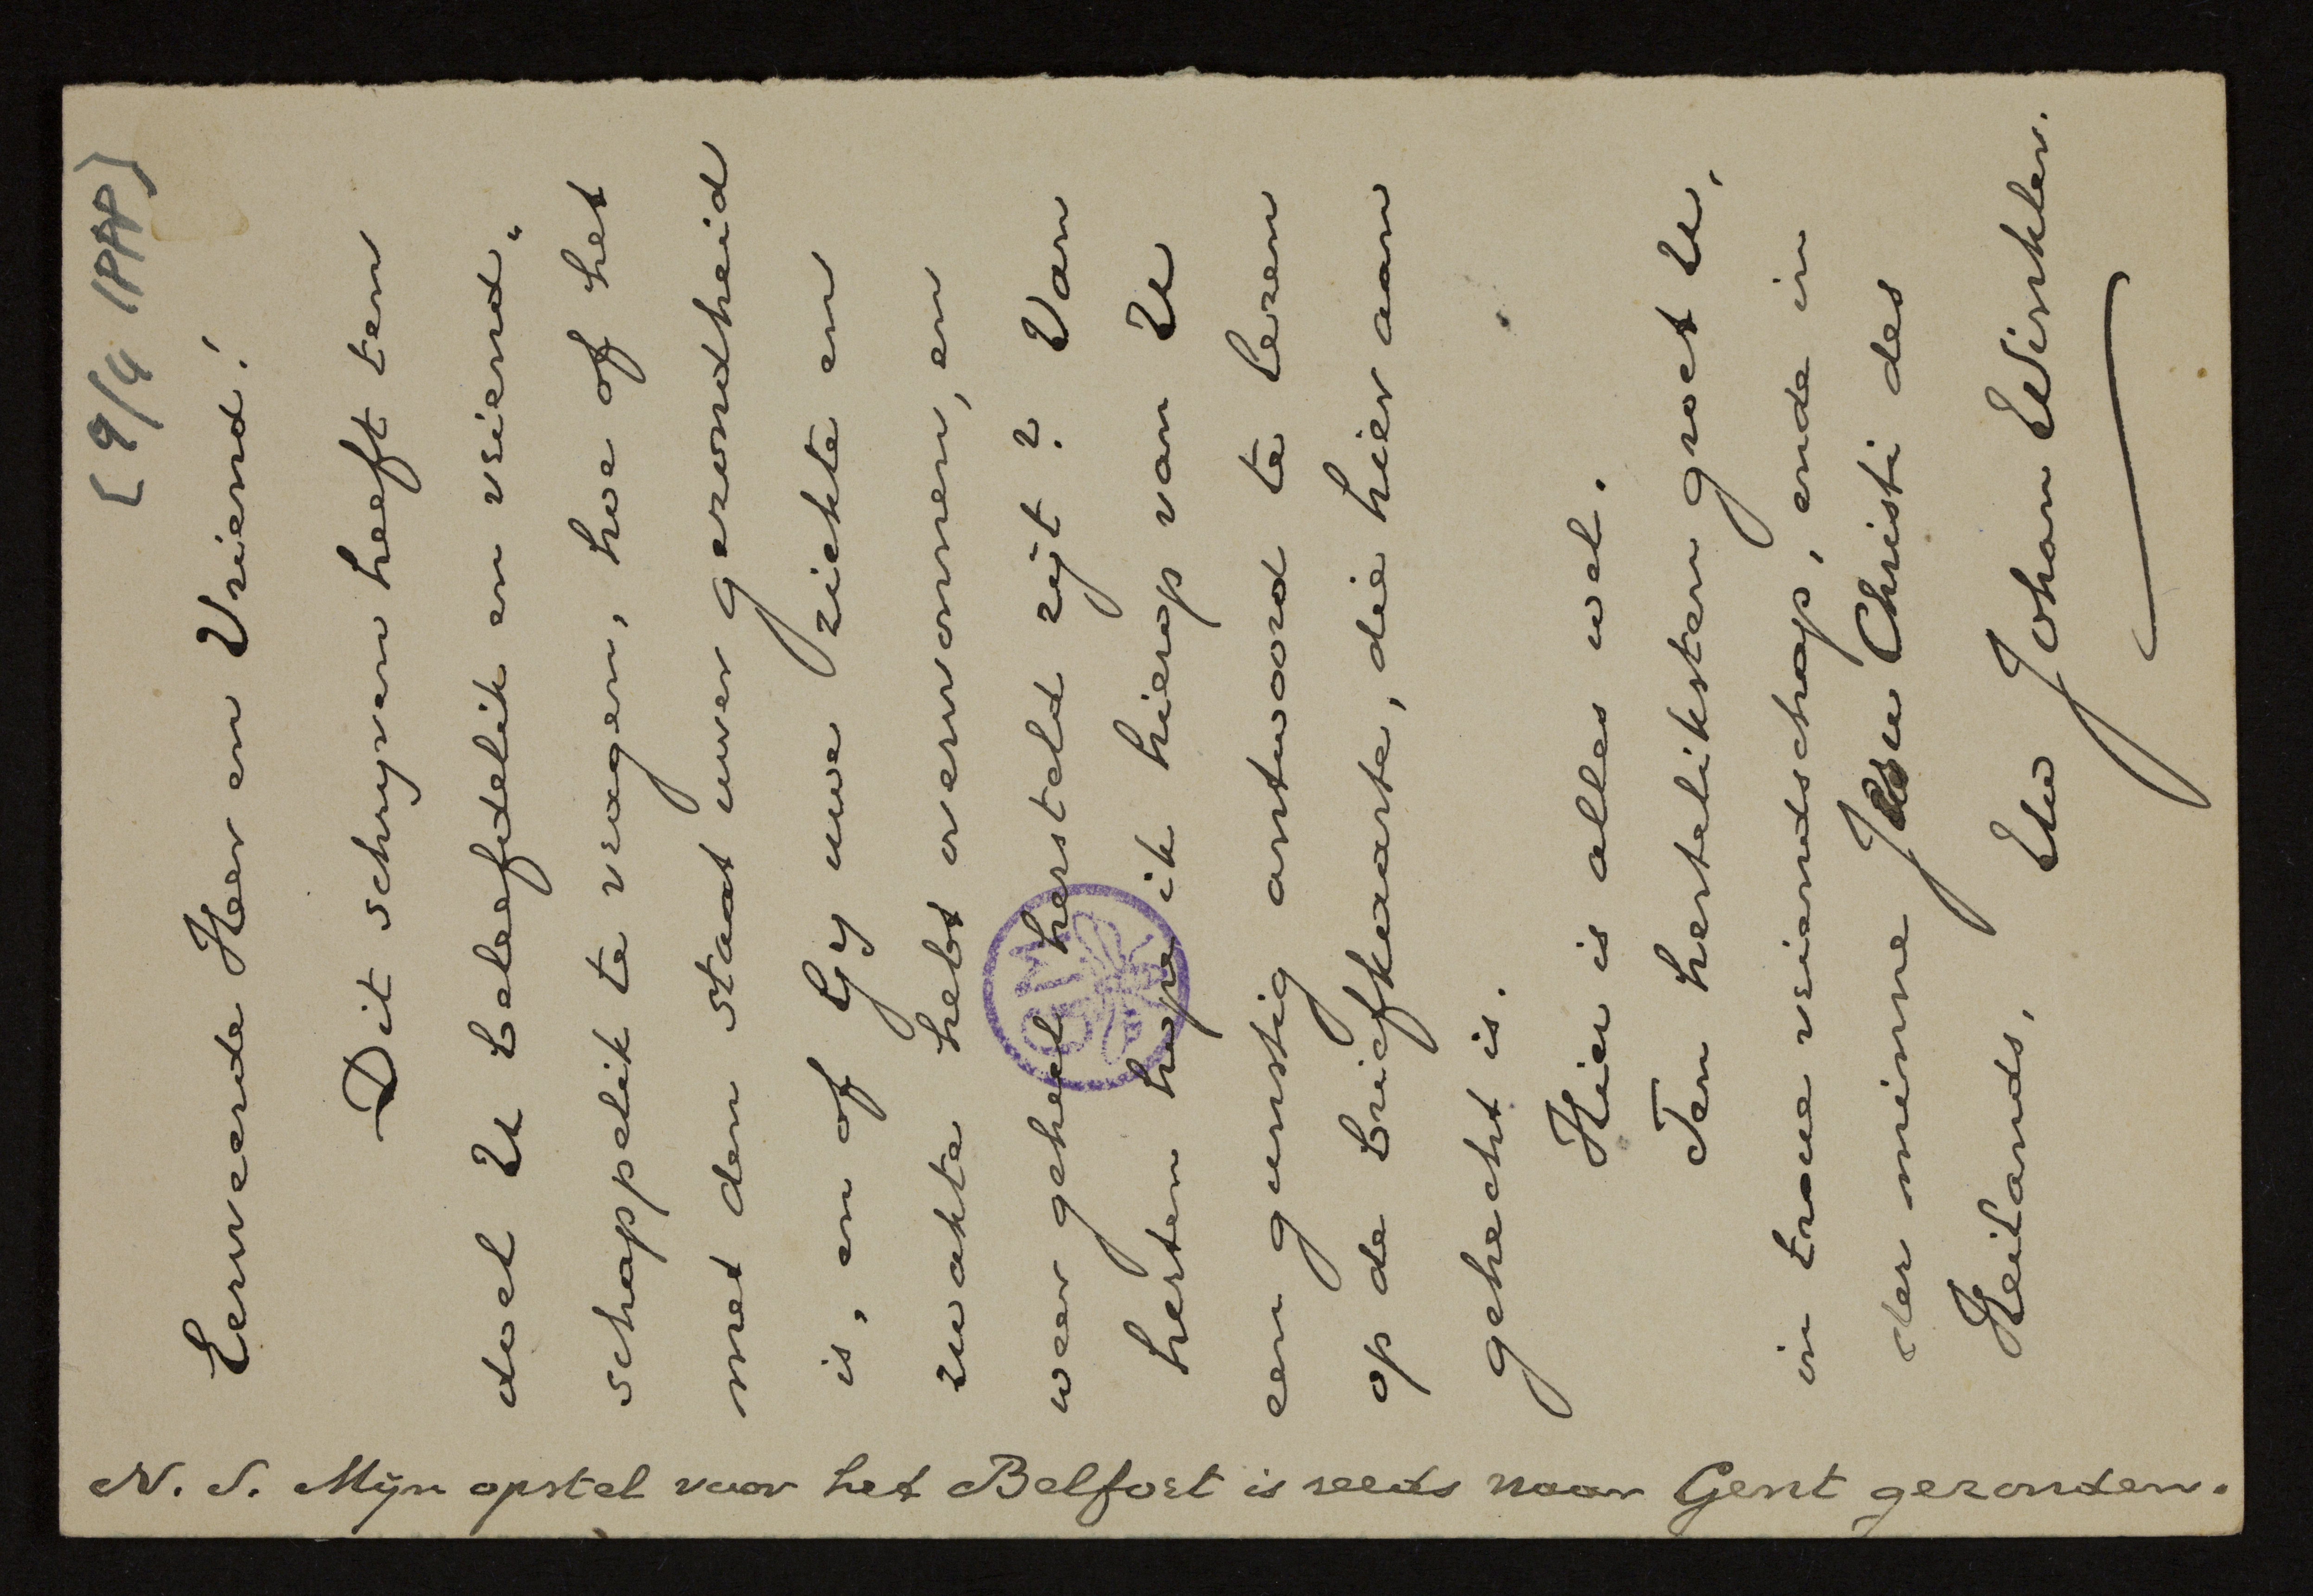 [9/4 1PAP]
Eerweerde Heer en Vriend!
Dit schryven heeft ten
doel U beleefdelik en vriend-
schappelik te vragen, hoe of het
met den staat uwer gezondheid
is, en of Gy uwe ziekte en
zwakte hebt overwonnen, en
weer geheel hersteld zijt? Van
herten hope ik hierop van U
een gunstig antwoord te lezen
op de briefkaarte, die hier aan
gehecht is.
Hier is alles wel.
Ten hertelikksten groet U,
in trouwe vriendschap, ende in
der minne Jesu Christi des
Heilands,
Uw Johan Winkler.
GM
N. S. Mijn opstel voor het Belfort is reeds naar Gent gezonden.